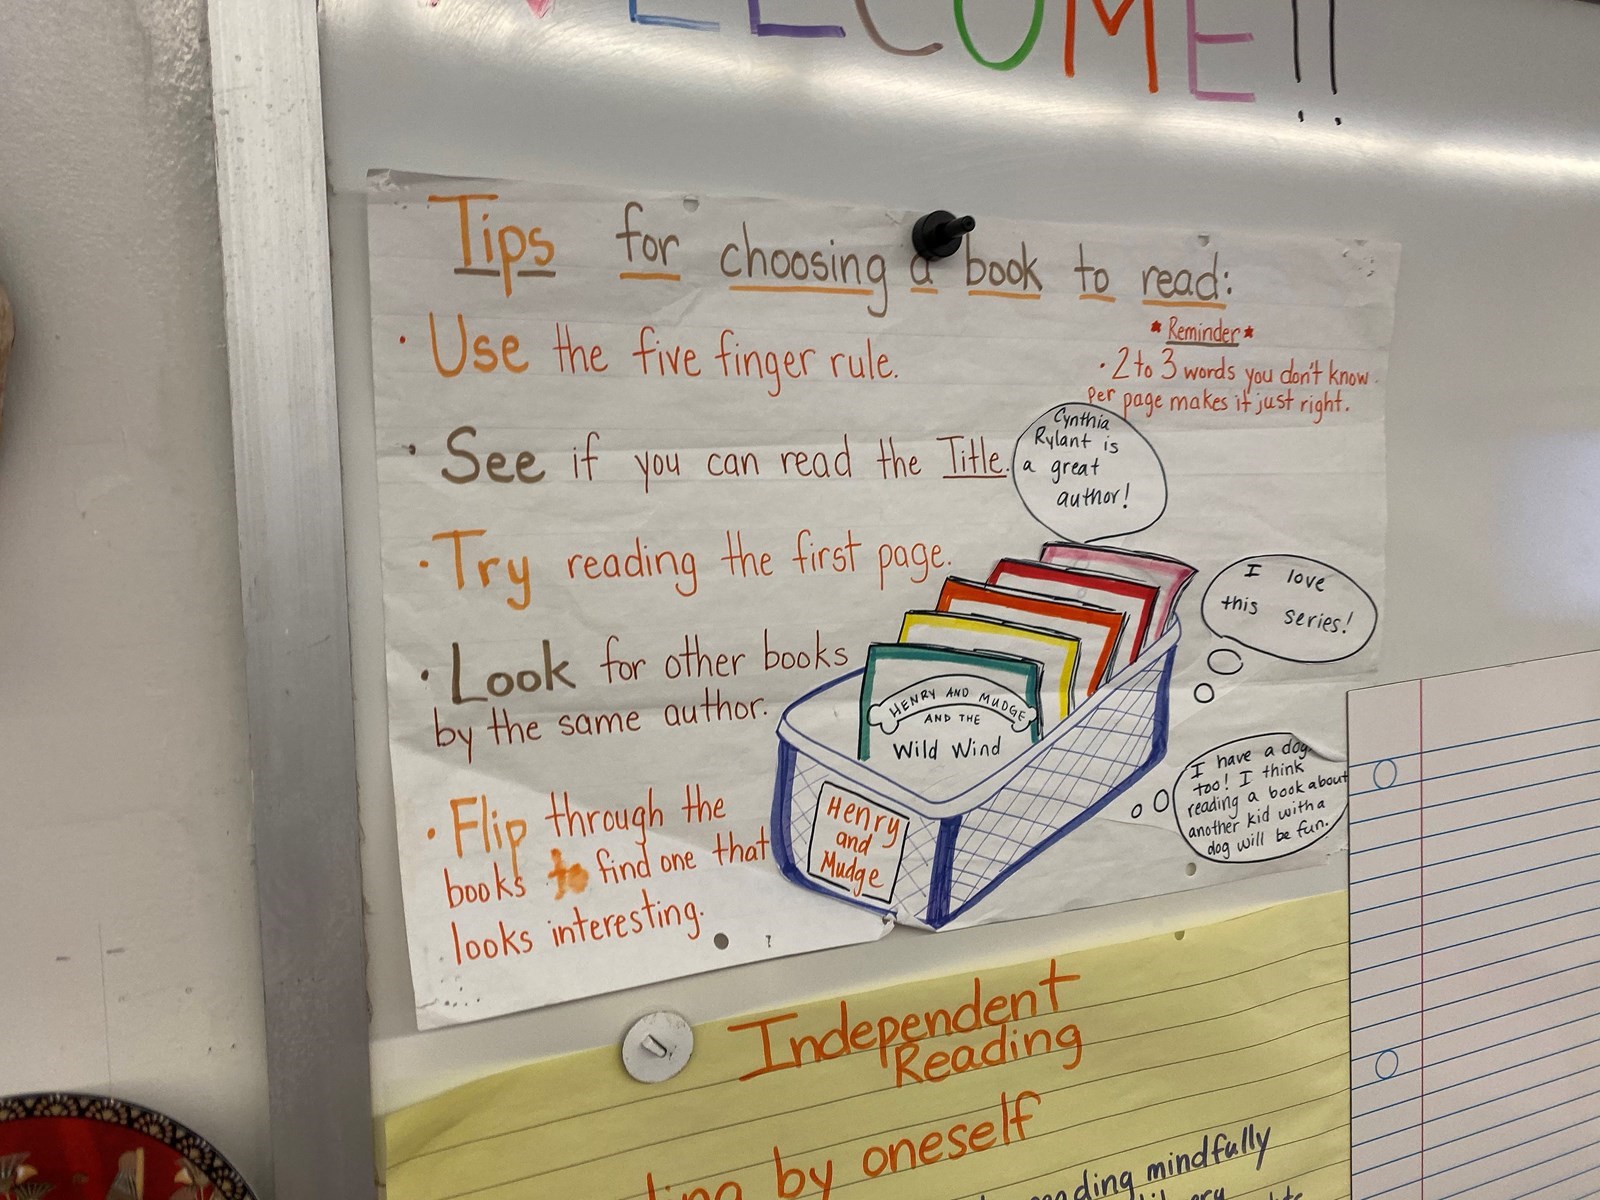 WELCOME!!
Tips for choosing a book to read:
• Use the five finger rule.
* Reminder *
• 2 to 3 words you don't know
per page makes it just right.
• See if you can read the Title.
Cynthia
Rylant is
a great
author!
• Try reading the first page.
I love
this series!
• Look for other books
by the same author.
HENRY AND MUDGE
AND THE
Wild Wind
I have a dog
too! I think
reading a book about
another kid with a
dog will be fun.
• Flip through the
books to find one that
looks interesting.
Henry
and
Mudge
?
Independent
Reading
by oneself
mindfully